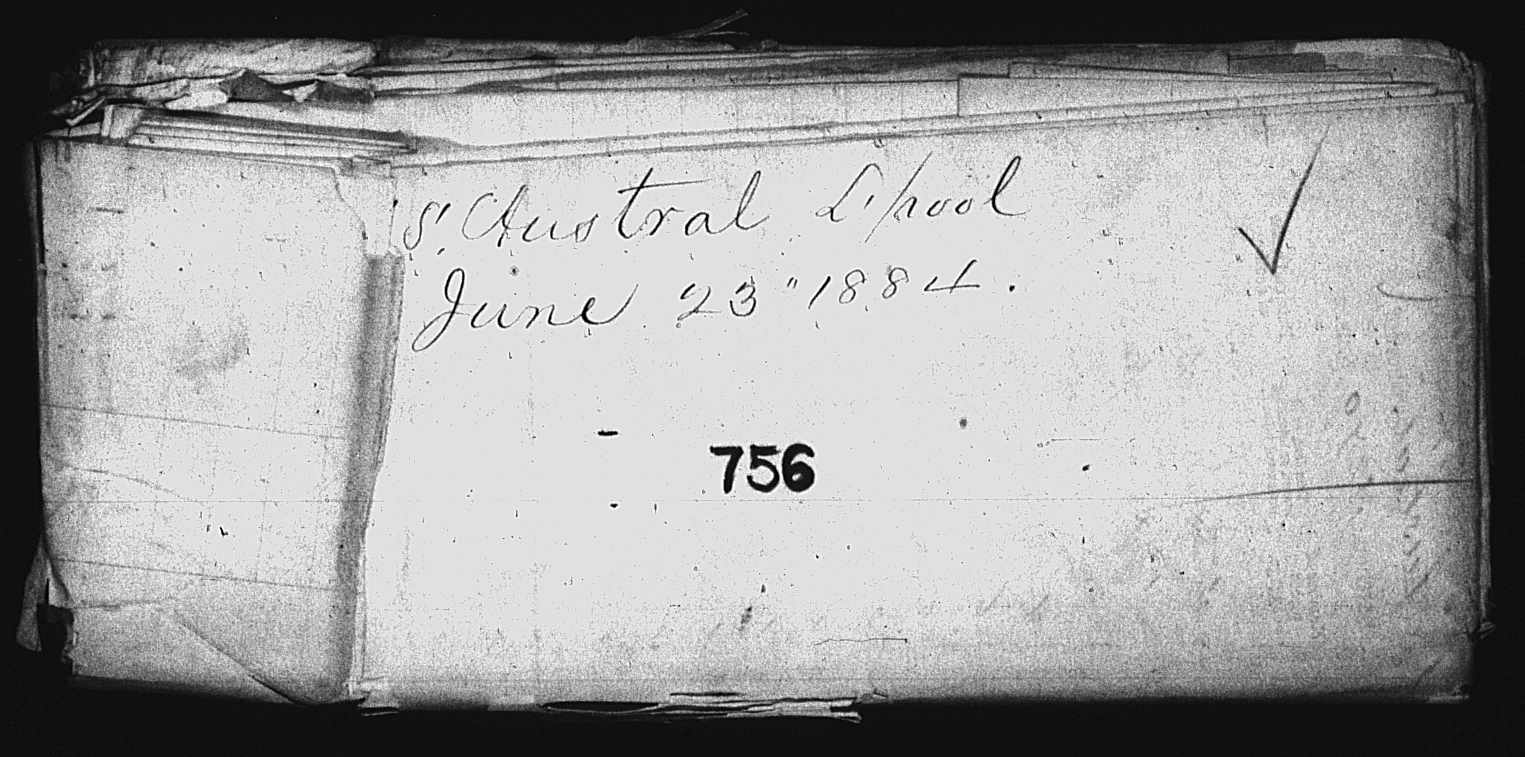 S. Austral L'pool
June 23" 1884.
756